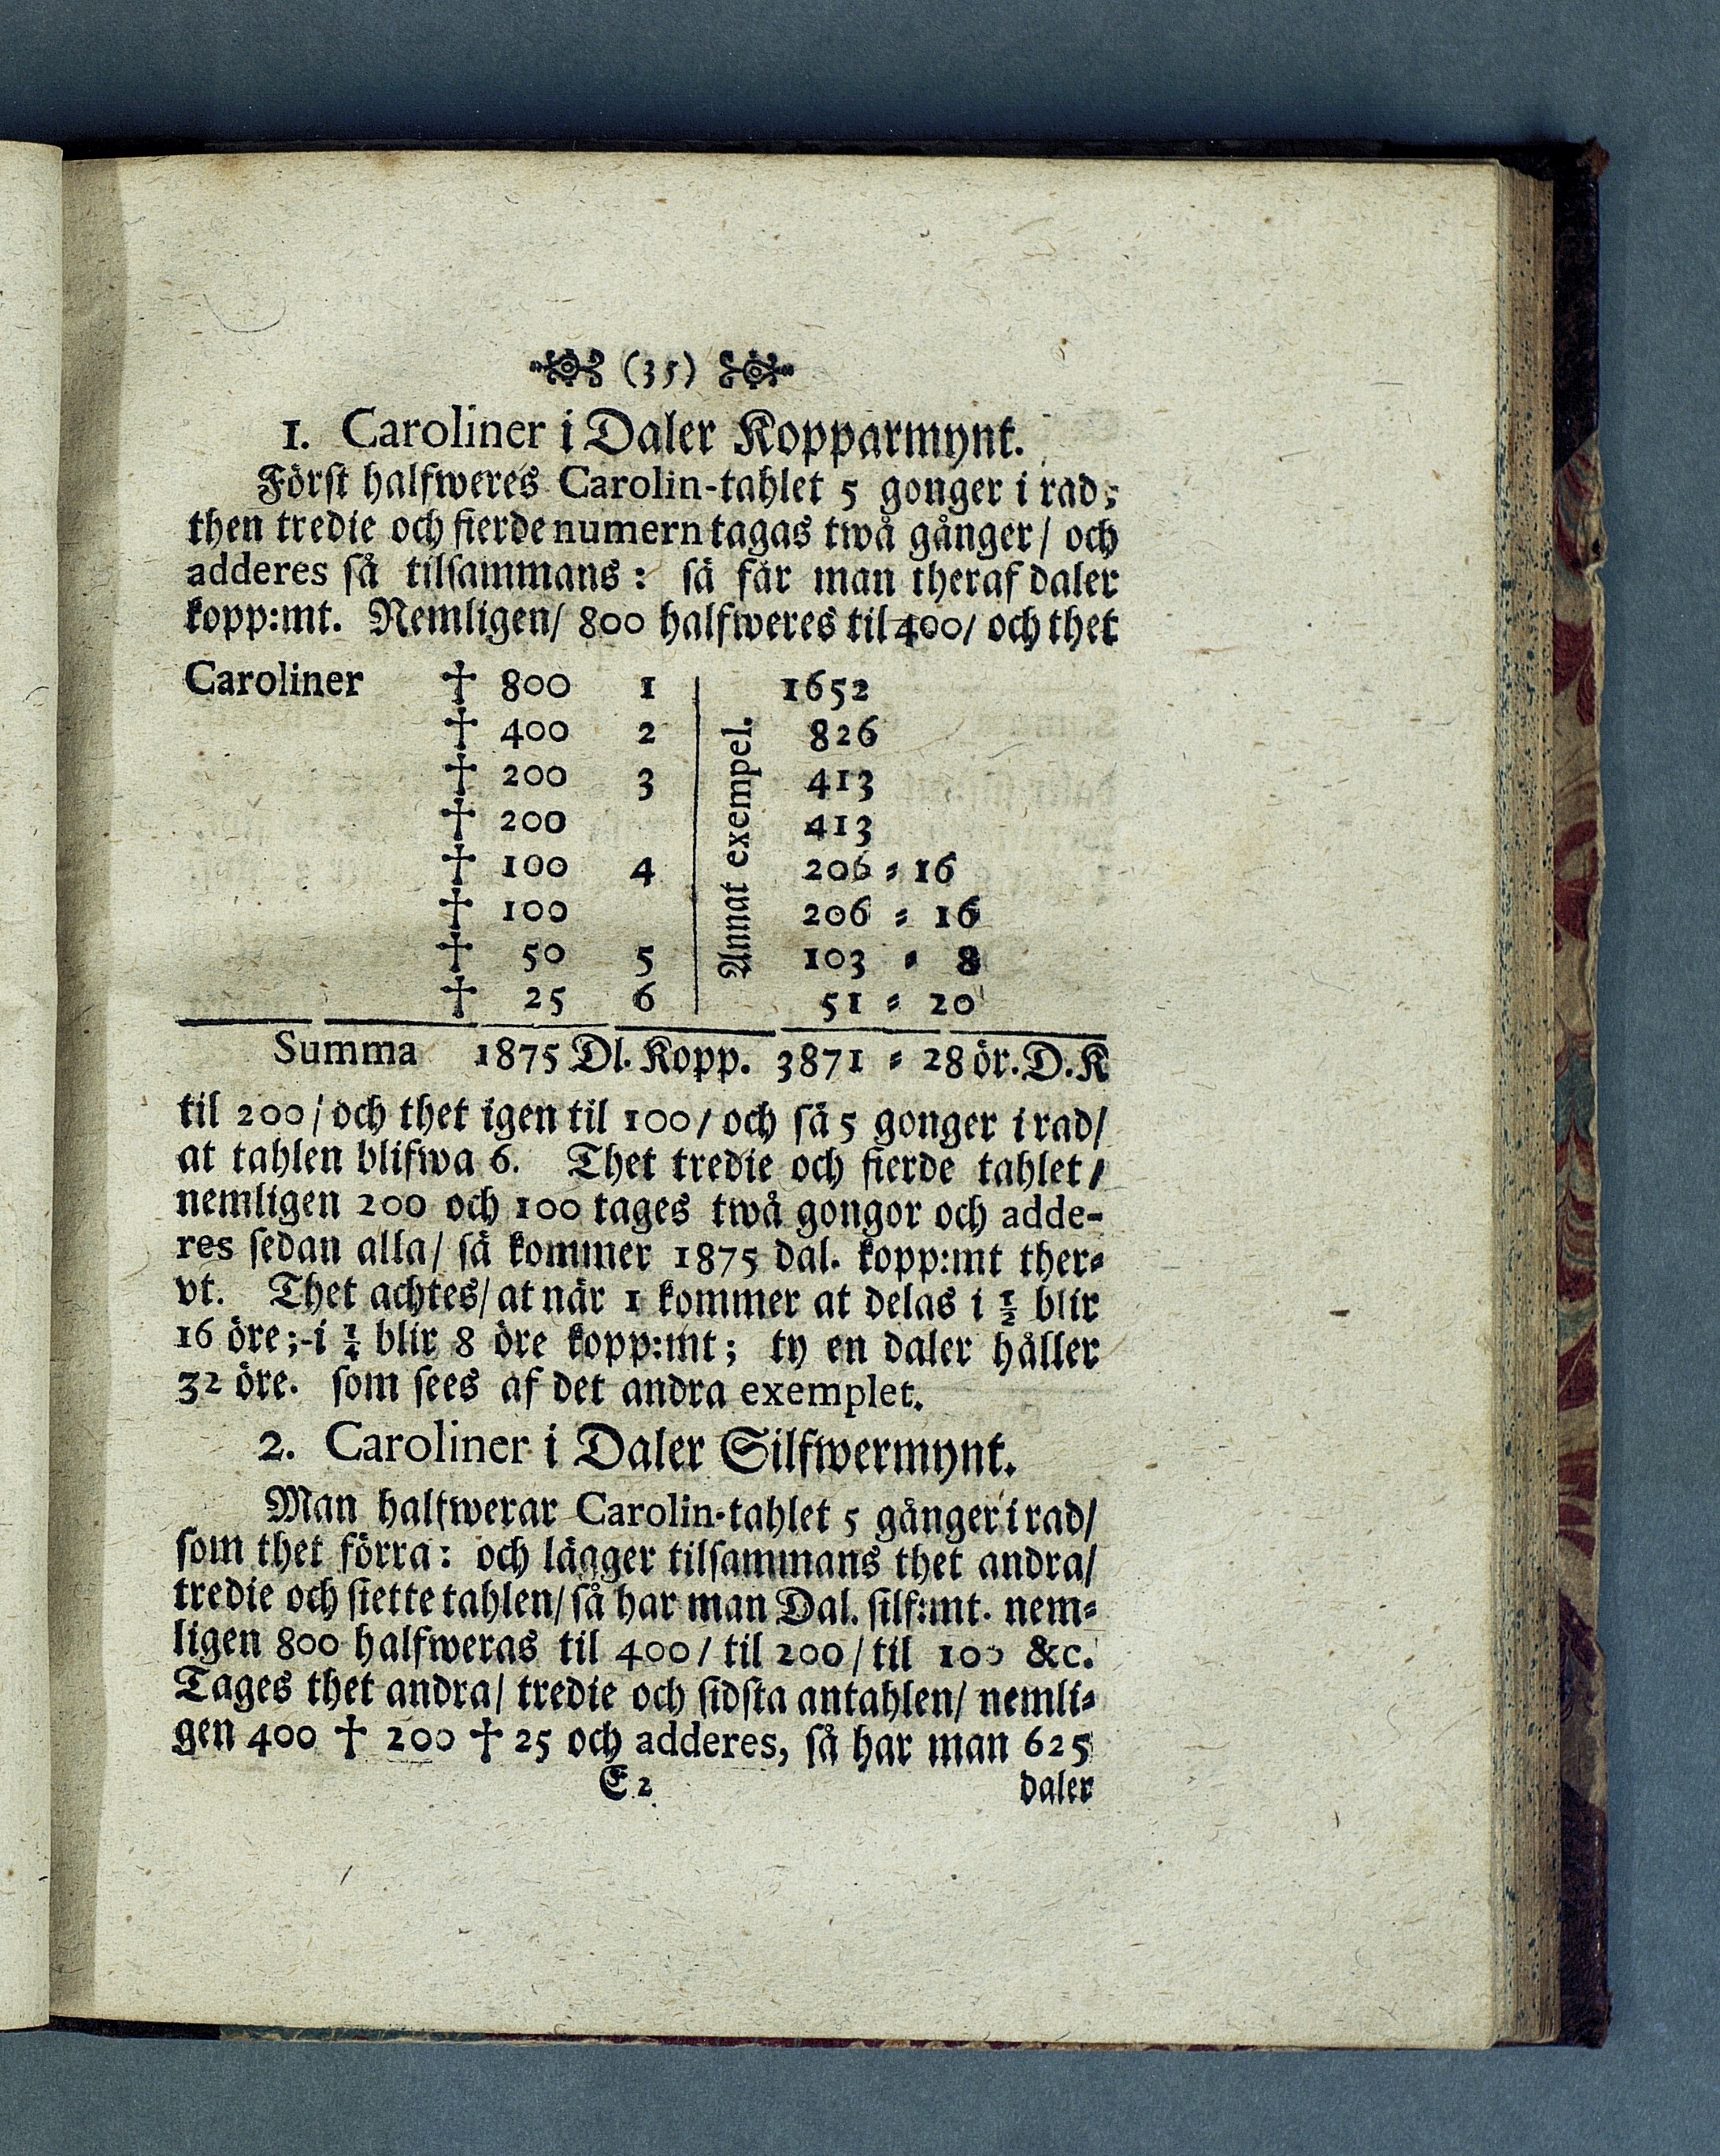 (35)
1. Caroliner i Daler Kopparmynt.
Först halfweres Carolin-tahlet 5 gonger i rad;
then tredie och fierde numern tagas twå gånger/ och
adderes så tilsammans: sä får man theraf daler
kopp:mt. Nemligen/ 800 halfweres til 400/ och thet
Caroliner † 800 1 | 1652
† 400 2 | 826
† 200 3 | 413
† 200 | 413
† 100 4 | 206 = 16
† 100 | 206 = 16
† 50 5 | 103 = 8
† 25 6 | 51 = 20
Annat exempel.
Summa 1875 Dl. Kopp. 3871 = 28 ör. D. K
til 200/ och thet igen til 100/ och sä 5 gonger i rad/
at tahlen blifwa 6. Thet tredie och fierde tahlet/
nemligen 200 och 100 tages twå gongor och adde-
res sedan alla/ sä kommer 1875 dal. kopp:mt ther=
vt. Thet achtes/ at när 1 kommer at delas i ½ blir
16 öre;-i ¼ blir 8 öre kopp:mt; ty en daler håller
32 öre. som sees af det andra exemplet.
2. Caroliner i Daler Silfwermynt.
Man halfwerar Carolin-tahlet 5 gånger i rad/
som thet förra: och lägger tilsammans thet andra/
tredie och siette tahlen/ så har man Dal. silf:mt. nem=
ligen 800 halfweras til 400/ til 200/ til 100 &c.
Tages thet andra/ tredie och sidsta antahlen/ nemli=
gen 400 † 200 † 25 och adderes, så har man 625
E 2 daler